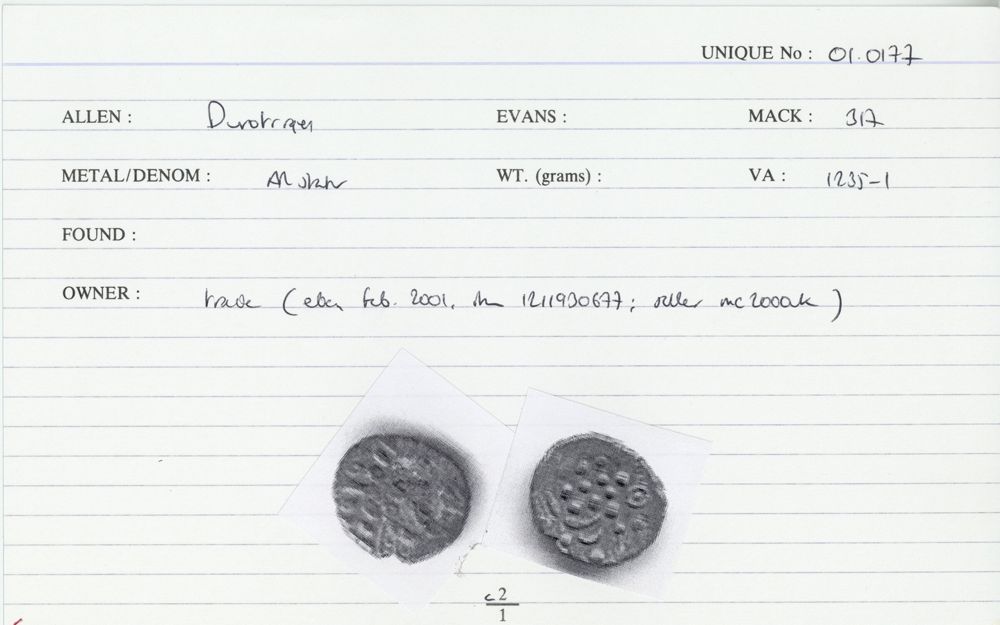 UNIQUE No : 01.0177
ALLEN : Durotriges EVANS : MACK : 317
METAL/DENOM : AR stater WT. (grams) : VA : 1235-1
FOUND :
OWNER : trade (ebay Feb. 2001, item 1211930677; seller mc2000uk)
c2
1